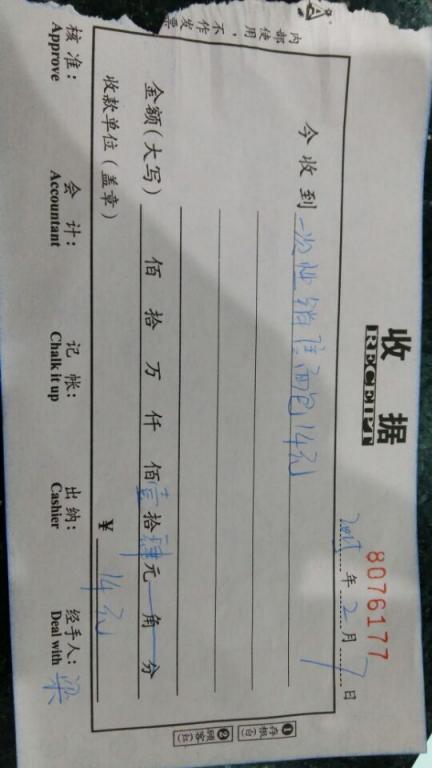 收 据
RECEIPT
8076177
年 2 月 7 日
今收到 一次性销售面包14元
金额(大写) 佰 拾 万 仟 佰 壹 拾 肆 元 角 分
收款单位(盖章) ¥ 14元
核准: 会计: 记帐: 出纳: 经手人: 梁
Approve Accountant Chalk it up Cashier Deal with
内部使用
不作发票
①存根(白)
②顾客(红)